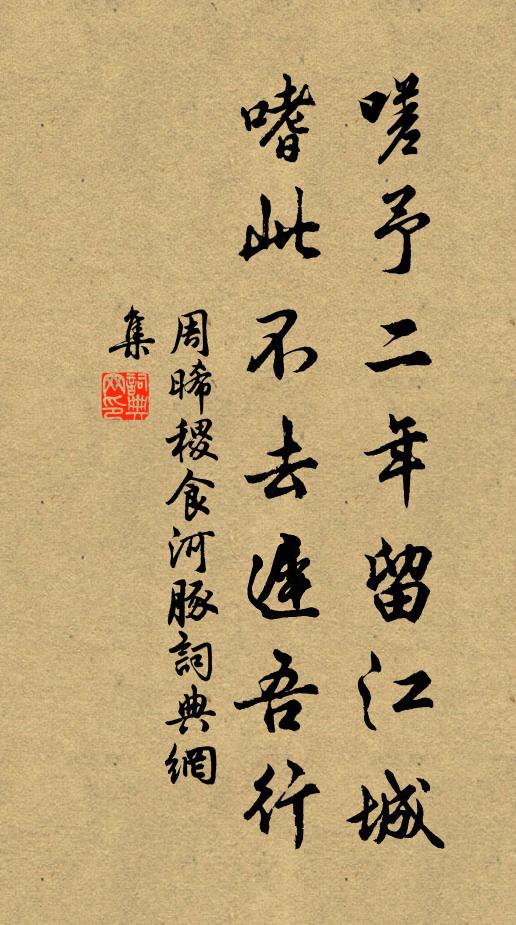 嗟予二年留江城
嗜此不去遲吾行
周晞稷食河豚詞典網
集
詞典
網印